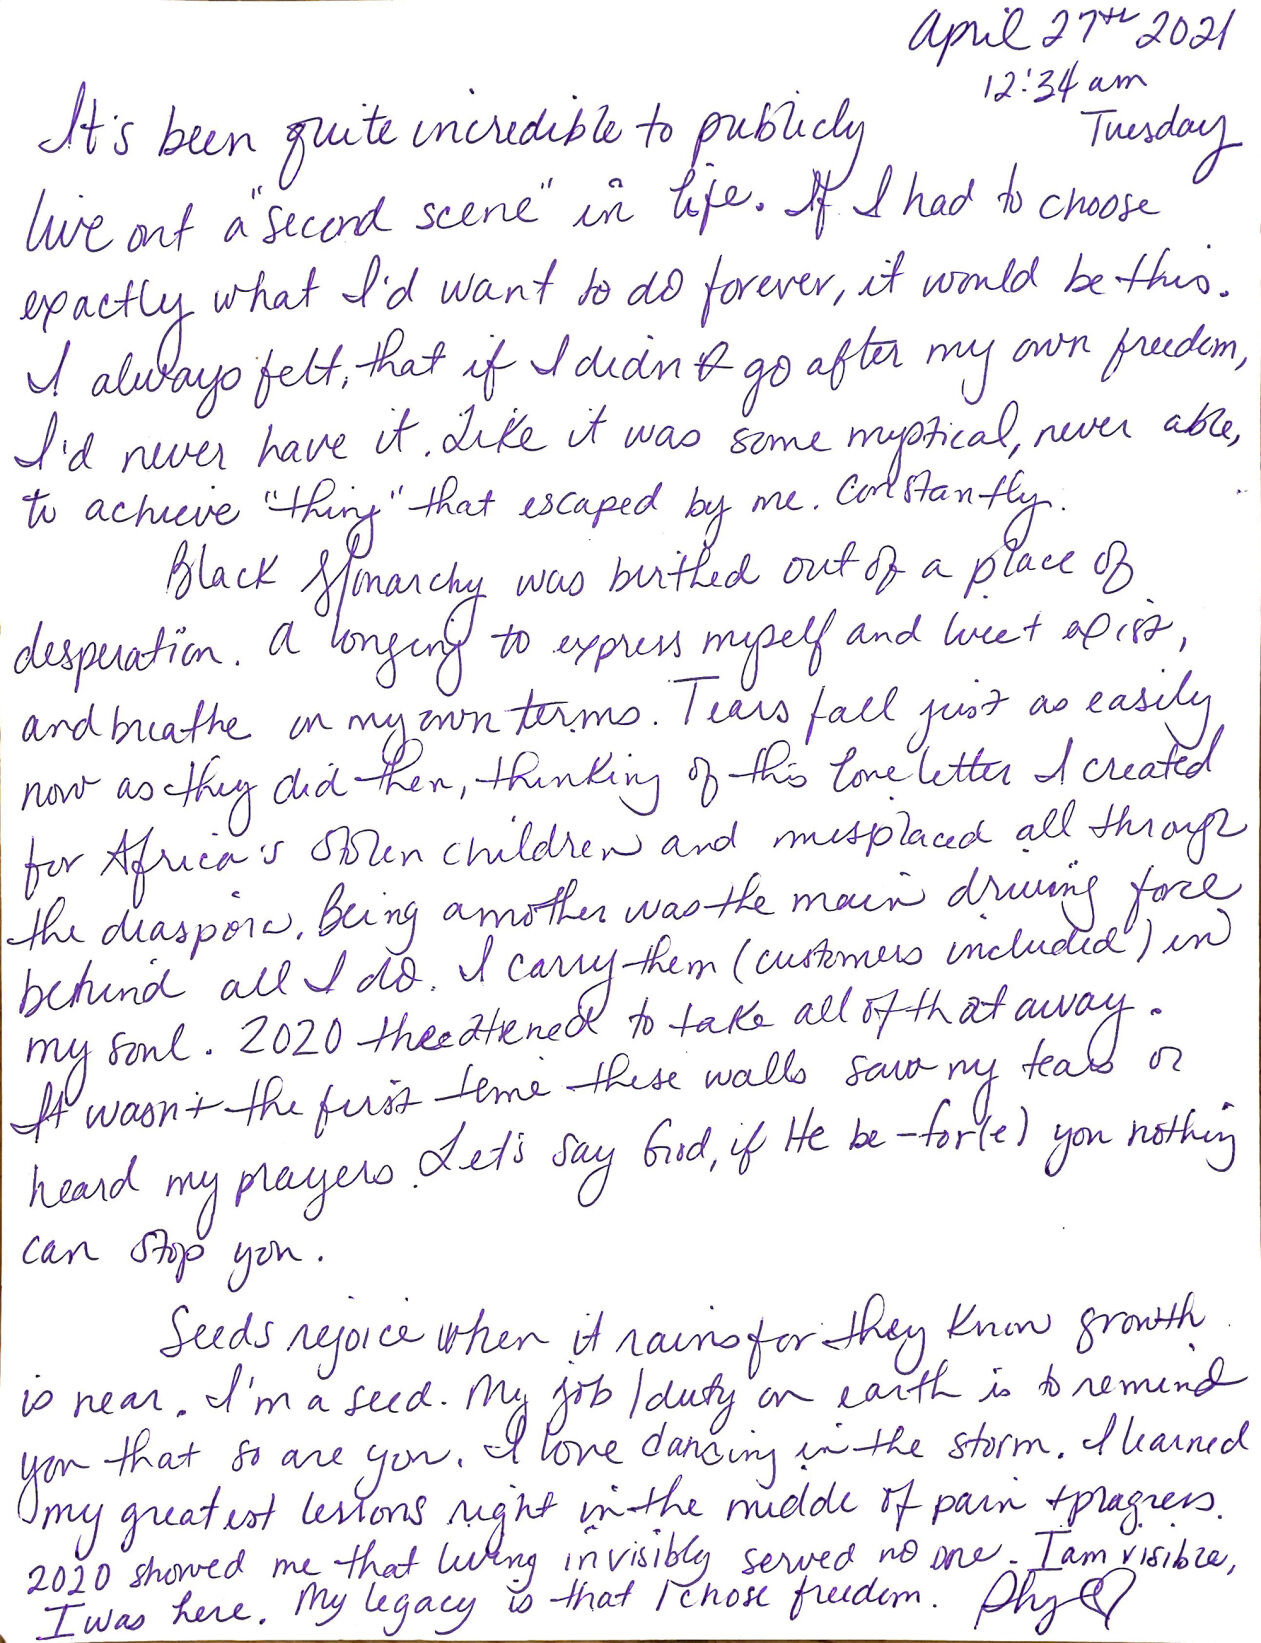 April 27th 2021
12:34 am
Tuesday
It's been quite incredible to publicly
live out a "second scene" in life. If I had to choose
exactly what I'd want to do forever, it would be this.
I always felt, that if I didn't go after my own freedom,
I'd never have it. Like it was some mystical, never able,
to achieve "thing" that escaped by me. Constantly.
Black Monarchy was birthed out of a place of
desperation. A longing to express myself and live + exist,
and breathe on my own terms. Tears fall just as easily
now as they did then, thinking of this love letter I created
for Africa's stolen children and misplaced all through
the diaspora. Being a mother was the main driving force
behind all I do. I carry them (customers included) in
my soul. 2020 threatened to take all of that away.
It wasn't the first time these walls saw my tears or
heard my prayers. Let's say God, if He be-for(e) you nothing
can stop you.
Seeds rejoice when it rains for they know growth
is near. I'm a seed. My job/duty on earth is to remind
you that so are you. I love dancing in the storm. I learned
my greatest lessons right in the middle of pain + progress.
2020 showed me that living invisibly served no one. I am visible,
I was here. My legacy is that I chose freedom.